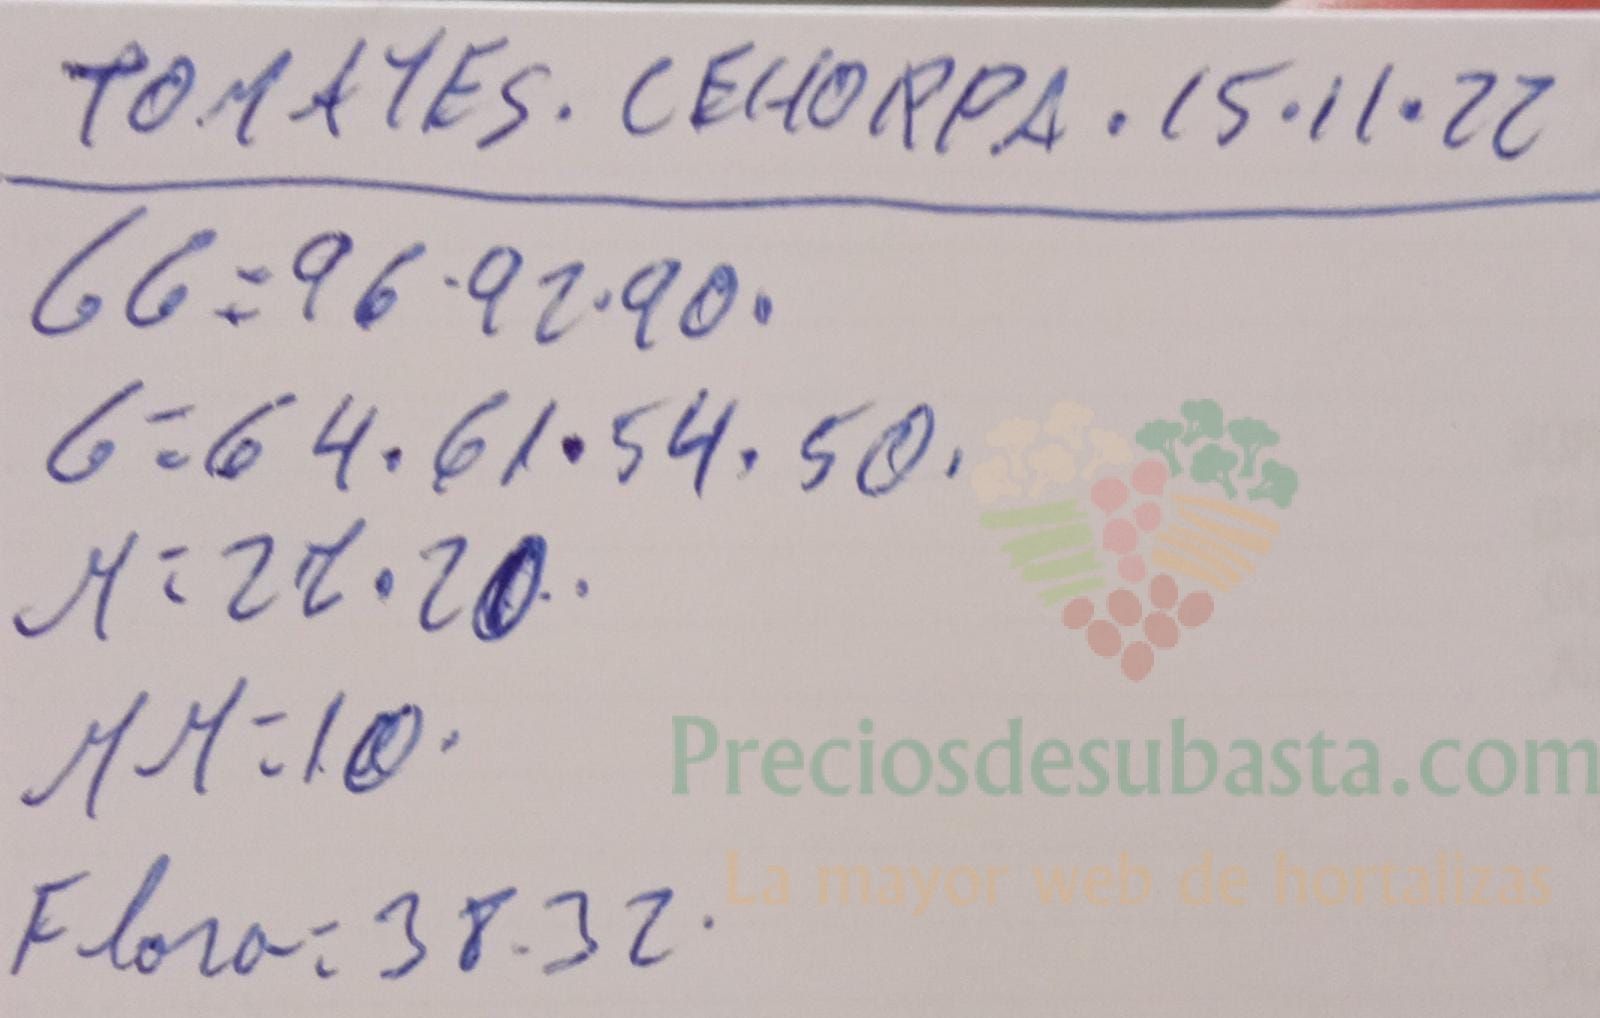 TOMATES. CEHORPA. 15.11.22
GG=96.92.90.
G=64.61.54.50.
M=22.20.
MM=10.
Flora=38.32.
Preciosdesubasta.com
La mayor web de hortalizas